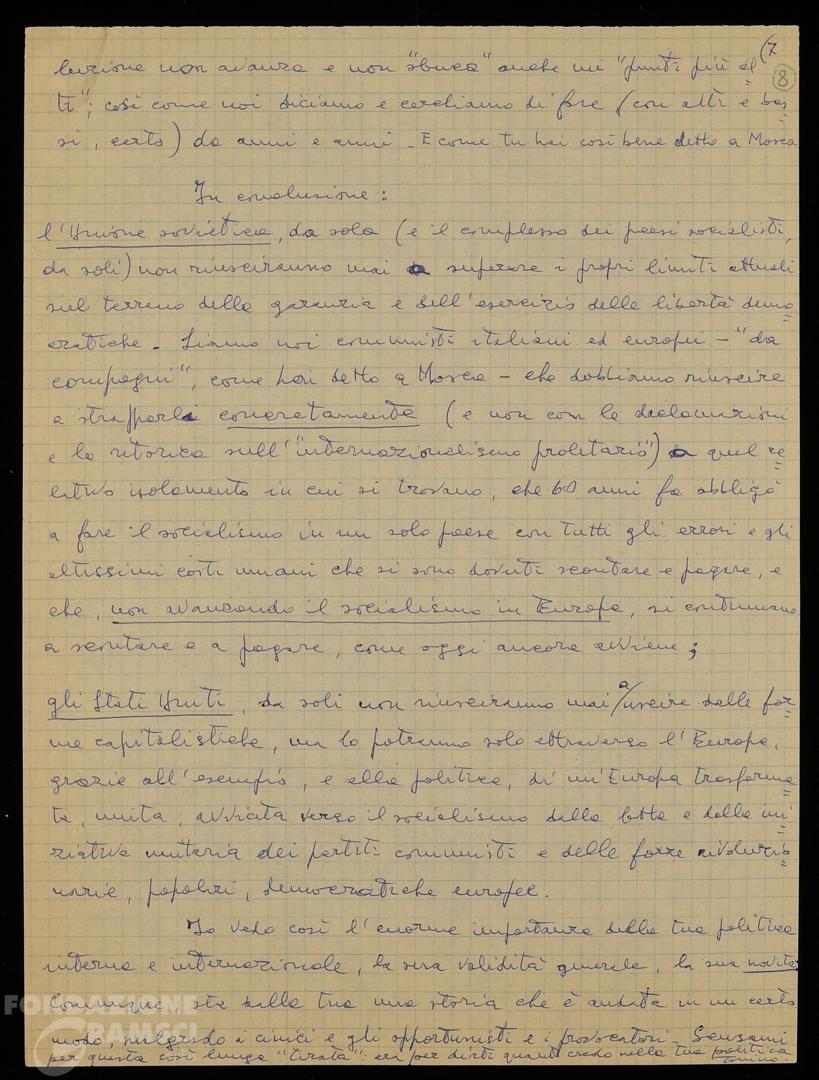 (7
8
luzione non avanza e non "sbuca" anche nei "punti più al=
ti"; così come noi diciamo e cerchiamo di fare (con alti e bas=
si, certo) da anni e anni - E come tu hai così bene detto a Mosca
In conclusione:
l'Unione sovietica, da sola (e il complesso dei paesi socialisti,
da soli) non riusciranno mai a superare i propri limiti attuali
sul terreno della garanzia e dell'esercizio delle libertà demo=
cratiche. Siamo noi comunisti italiani ed europei - "da
compagni", come hai detto a Mosca - che dobbiamo riuscire
a strapparli concretamente (e non con le declamazioni
e la retorica sull'"internazionalismo proletario") a quel re=
lativo isolamento in cui si trovano, che 60 anni fa obbligò
a fare il socialismo in un solo paese con tutti gli errori e gli
altissimi costi umani che si sono dovuti scontare e pagare, e
che, non avanzando il socialismo in Europa, si continuano
a scontare e a pagare, come oggi ancora avviene;
gli Stati Uniti, da soli non riusciranno mai a uscire dalle for=
me capitalistiche, ma lo potranno solo attraverso l'Europa,
grazie all'esempio, e alla politica, di un'Europa trasforma=
ta, unita, avviata verso il socialismo dalla lotta e dalla ini=
ziativa unitaria dei partiti comunisti e delle forze rivoluzio=
narie, popolari, democratiche europee.
Io vedo così l'enorme importanza della tua politica
interna e internazionale, la sua validità generale, la sua novità.
Comunque, sta dalla tua una storia che è andata in un certo
modo, malgrado i cinici e gli opportunisti e i provocatori - Scusami
per questa così lunga "tirata": era per dirti quanto credo nella tua politica
FONDAZIONE
GRAMSCI